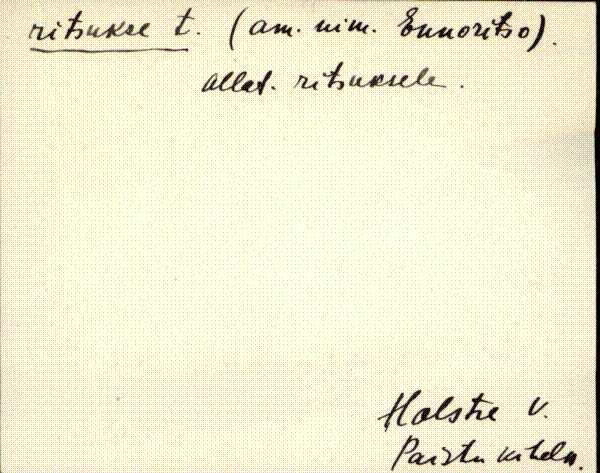 ritsukse t. (am. nim. Ennoritso).
allat. ritsuksele.
Holstre v.
Paistu kiheln.